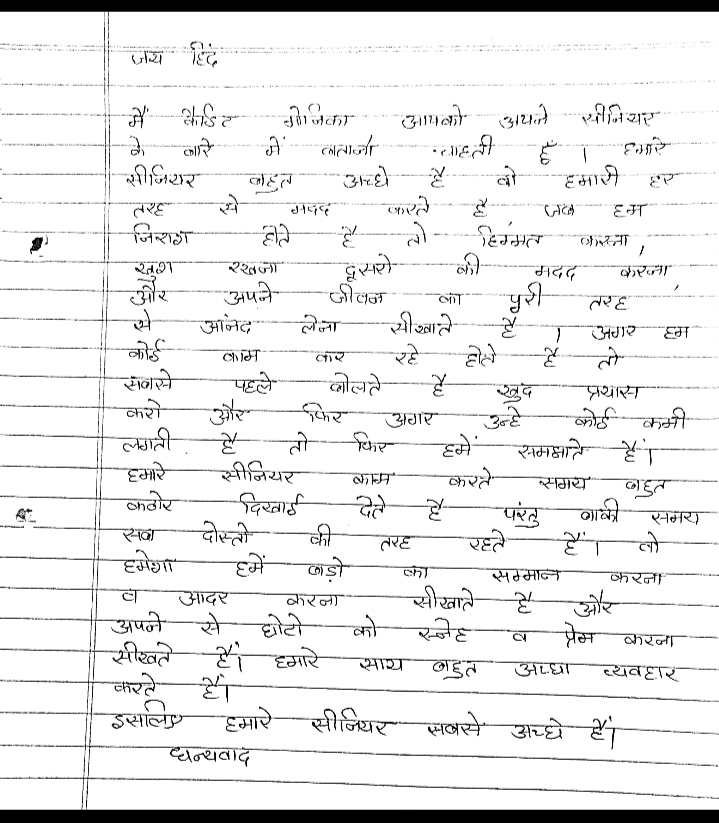 जय हिंद
मैं कैडिट गोनिका आपको अपने सीनियर
के बारे में बताना चाहती हूँ । हमारे
सीनियर बहुत अच्छे है वो हमारी हर
तरह से मदद करते है जब हम
निराश होते है तो हिम्मत करना,
खुश रखना दूसरो की मदद करना,
और अपने जीवन का पुरी तरह
से आंनद लेना सीखाते है । अगर हम
कोई काम कर रहे होते है तो
सबसे पहले बोलते है खुद प्रयास
करो और फिर अगर उन्हे कोई कमी
लगती है तो फिर हमें समझाते हैं।
हमारे सीनियर काम करते समय बहुत
कठोर दिखाई देते है परंतु बाकी समय
सब दोस्तो की तरह रहते हैं। वो
हमेशा हमें बड़ो का सम्मान करना
व आदर करना सीखाते है और
अपने से छोटो को स्नेह व प्रेम करना
सीखते हैं। हमारे साथ बहुत अच्छा व्यवहार
करते हैं।
इसलिए हमारे सीनियर सबसे अच्छे हैं।
धन्यवाद